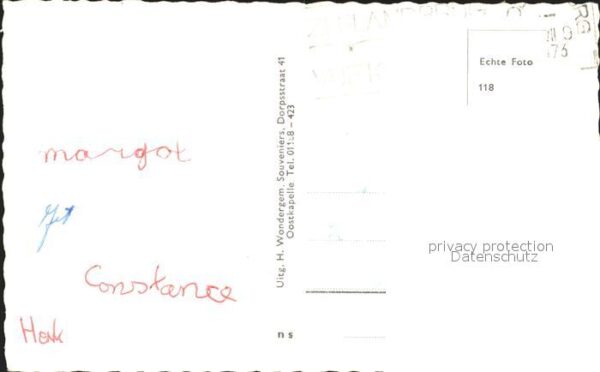 margot
Constance
Henk
Uitg. H. Wondergem, Souveniers, Dorpsstraat 41
Oostkapelle Tel. 01188 - 423
n s
Echte Foto
118
privacy protection
Datenschutz